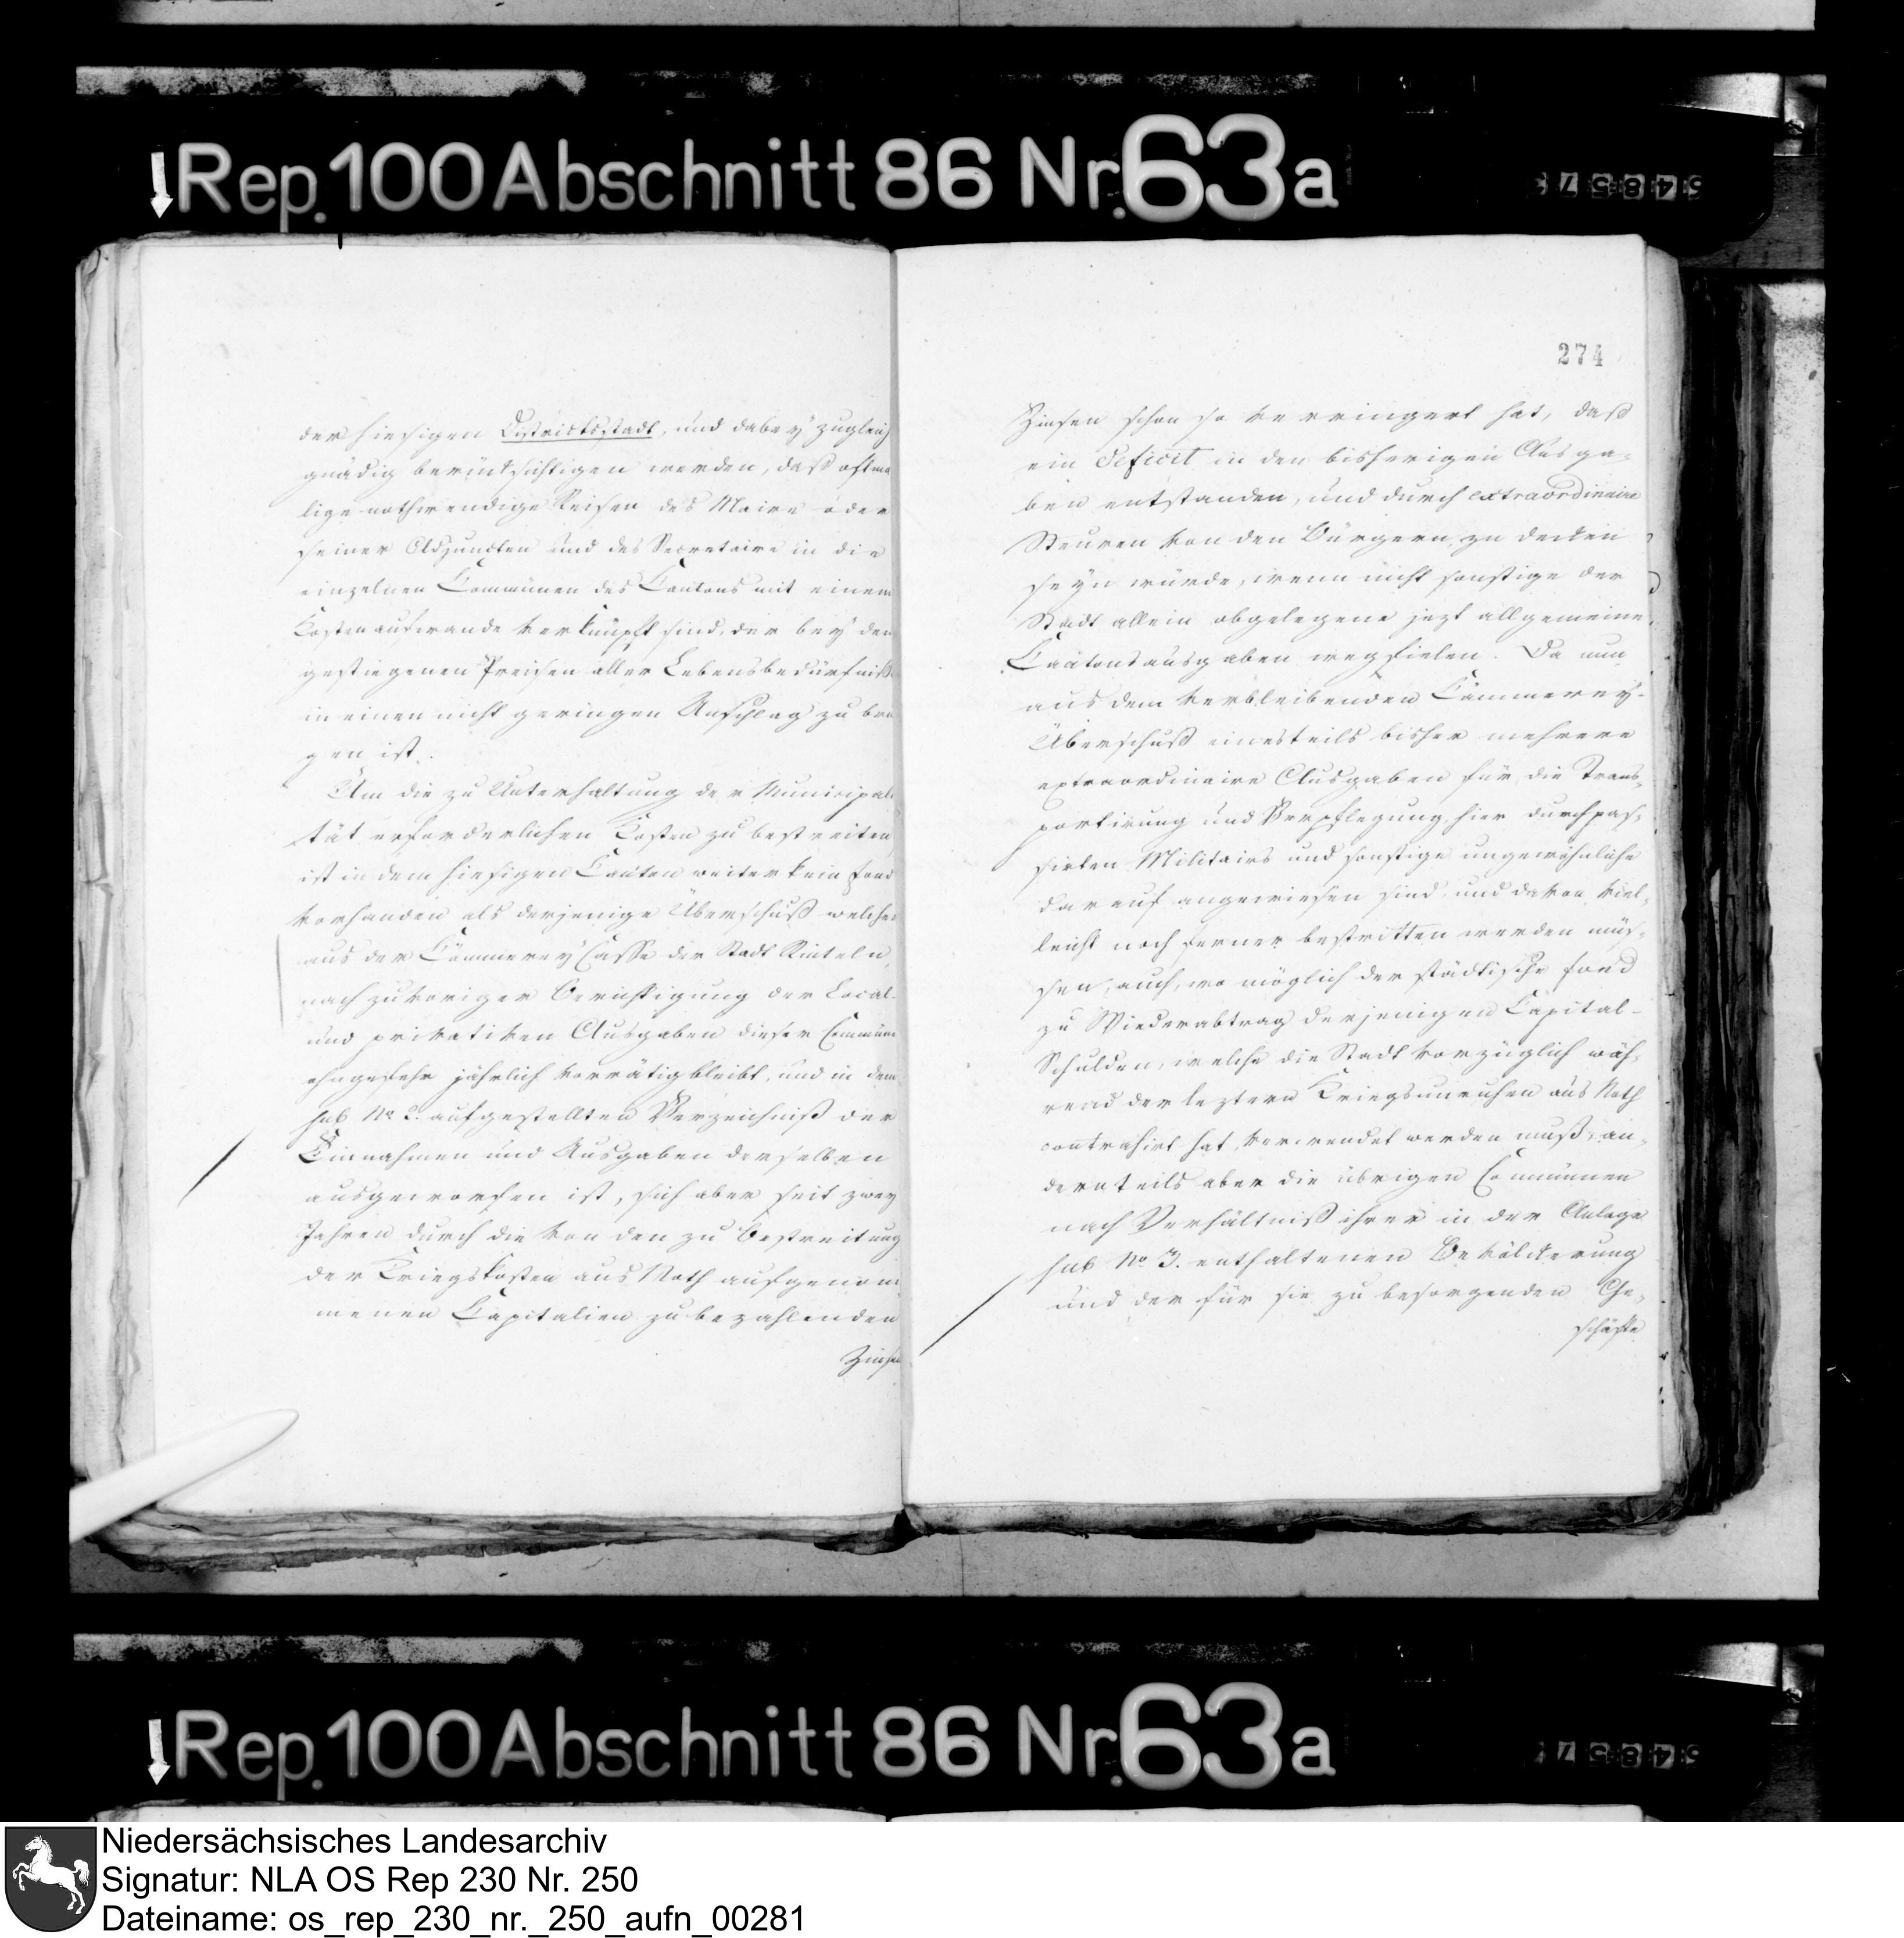 Rep. 100 Abschnitt 86 Nr. 63a
der hiesigen Districtsstadt, und dabey zugleich
gnädig berücksichtigen werden, daß oftma
lige nothwendige Reisen des Maire oder
seiner Adjuncten und des Secretaire in die
einzelnen Communen des Cantons mit einem
Kostenaufwande verknüpft sind, der bey den
gestiegenen Preisen aller Lebensbedürfniße
in einen nicht geringen Anschlag zu brin
gen ist.
Um die zu Unterhaltung der Municipali
tät erforderlichen Kosten zu bestreiten
ist in dem hiesigen Canton weiter kein Fond
vorhanden als derjenige Überschuß welcher
aus der Cämmerey Casse der Stadt Rinteln,
nach zuvoriger Berichtigung der Local-
und privativen Ausgaben dieser Commune
ohngefehr jährlich vorrätig bleibt, und in dem
sub No 2. aufgestellten Verzeichniß der
Einnahmen und Ausgaben derselben
ausgeworfen ist, sich aber seit zwey
Jahren durch die von den zu Bestreitung
der Kriegskosten aus Noth aufgenom
menen Capitalien zu bezahlenden
Zinsen
274
Zinsen schon so verringert hat, daß
ein Deficit in den bisherigen Ausga-
ben entstanden, und durch extraordinaire
Steuren von den Bürgern zu decken
seyn würde, wenn nicht sonstige der
Stadt allein obgelegene jezt allgemeine
Cantonsausgaben wegfielen. Da nun
aus dem verbleibenden Cämmerey-
Überschuß einesteils bisher mehrere
extraordinaire Ausgaben für die Trans-
portirung und Verpflegung hier durchpas-
sirten Militairs und sonstige ungewöhnliche
darauf angewiesen sind und davon viel-
leicht noch ferner bestritten werden müs-
sen, auch, wo möglich der städtische Fond
zu Wiederabtrag derjenigen Capital-
Schulden, welche die Stadt vorzüglich wäh-
rend der leztern Kriegsunruhen aus Noth
contrahirt hat, verwendet werden muß, an-
dernteils aber die übrigen Communen
nach Verhältniß ihrer in der Anlage
sub No 3. enthaltenen Bevölckerung
und der für sie zu besorgenden Ge-
schäfte
Rep. 100 Abschnitt 86 Nr. 63a
Niedersächsisches Landesarchiv
Signatur: NLA OS Rep 230 Nr. 250
Dateiname: os_rep_230_nr._250_aufn_00281